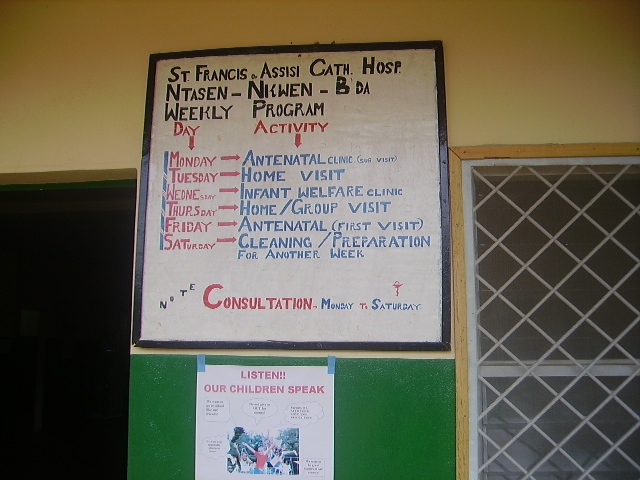 ST. FRANCIS OF ASSISI CATH. HOSP.
NTASEN - NKWEN - B'DA
WEEKLY PROGRAM
DAY ACTIVITY
MONDAY → ANTENATAL CLINIC (SUB VISIT)
TUESDAY → HOME VISIT
WEDNESDAY → INFANT WELFARE CLINIC
THURSDAY → HOME/GROUP VISIT
FRIDAY → ANTENATAL (FIRST VISIT)
SATURDAY → CLEANING/PREPARATION
FOR ANOTHER WEEK
NOTE CONSULTATION - MONDAY TO SATURDAY.
LISTEN!!
OUR CHILDREN SPEAK